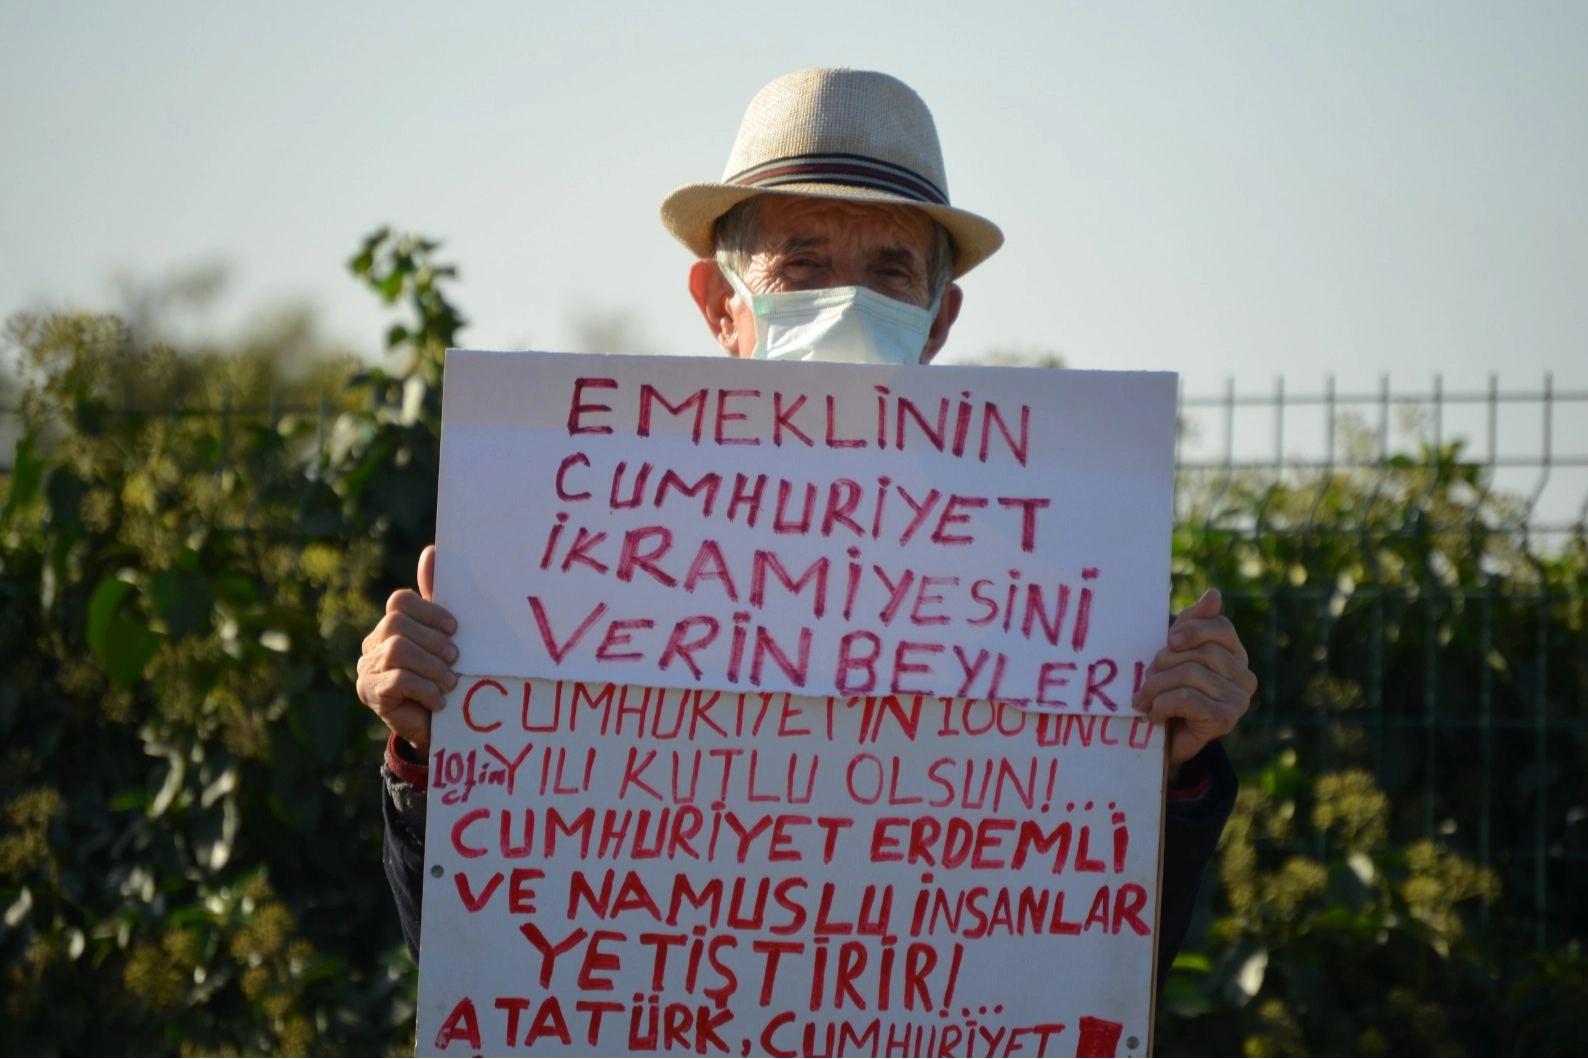 EMEKLİNİN
CUMHURİYET
İKRAMİYESİNİ
VERİN BEYLER!
CUMHURİYET'İN 100ÜNCÜ
101.in YILI KUTLU OLSUN!...
CUMHURİYET ERDEMLİ
VE NAMUSLU İNSANLAR
YETİŞTİRİR!...
ATATÜRK, CUMHURİYET